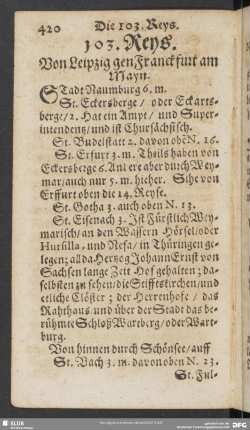 420 Die 103. Reys.
103. Reys.
Von Leipzig gen Franckfurt am
Mayn.
STadt Naumburg 6. m.
St. Eckersberge/ oder Eckarts-
berge/ 2. Hat ein Ampt/ und Super-
intendens/ und ist Chursächsisch.
St. Budelstatt 2. davon obẽ N. 16.
St. Erfurt 3. m. Theils haben von
Eckersberge 6. Andere aber durch Wey-
mar/ auch nur 5. m. hieher. Sihe von
Erffurt oben die 14. Reyse.
St. Gotha 3. auch oben N. 13.
St. Eisenach 3. Ist Fürstlich Wey-
marisch/ an den Wassern Hörsel/ oder
Hursilla/ und Nesa/ in Thüringen ge-
legen; allda Hertzog Johann Ernst von
Sachsen lange Zeit Hof gehalten; da-
selbsten zu sehen/ die Stifftskirchen/ und
etliche Clöster; der Herrenhofe/ das
Rahthaus/ und über der Stadt das be-
rühmte Schloß Warberg/ oder Wart-
burg.
Von hinnen durch Schönsee/ auff
St. Vach 3. m. davon oben N. 23.
St. Ful-
SLUB
DFG